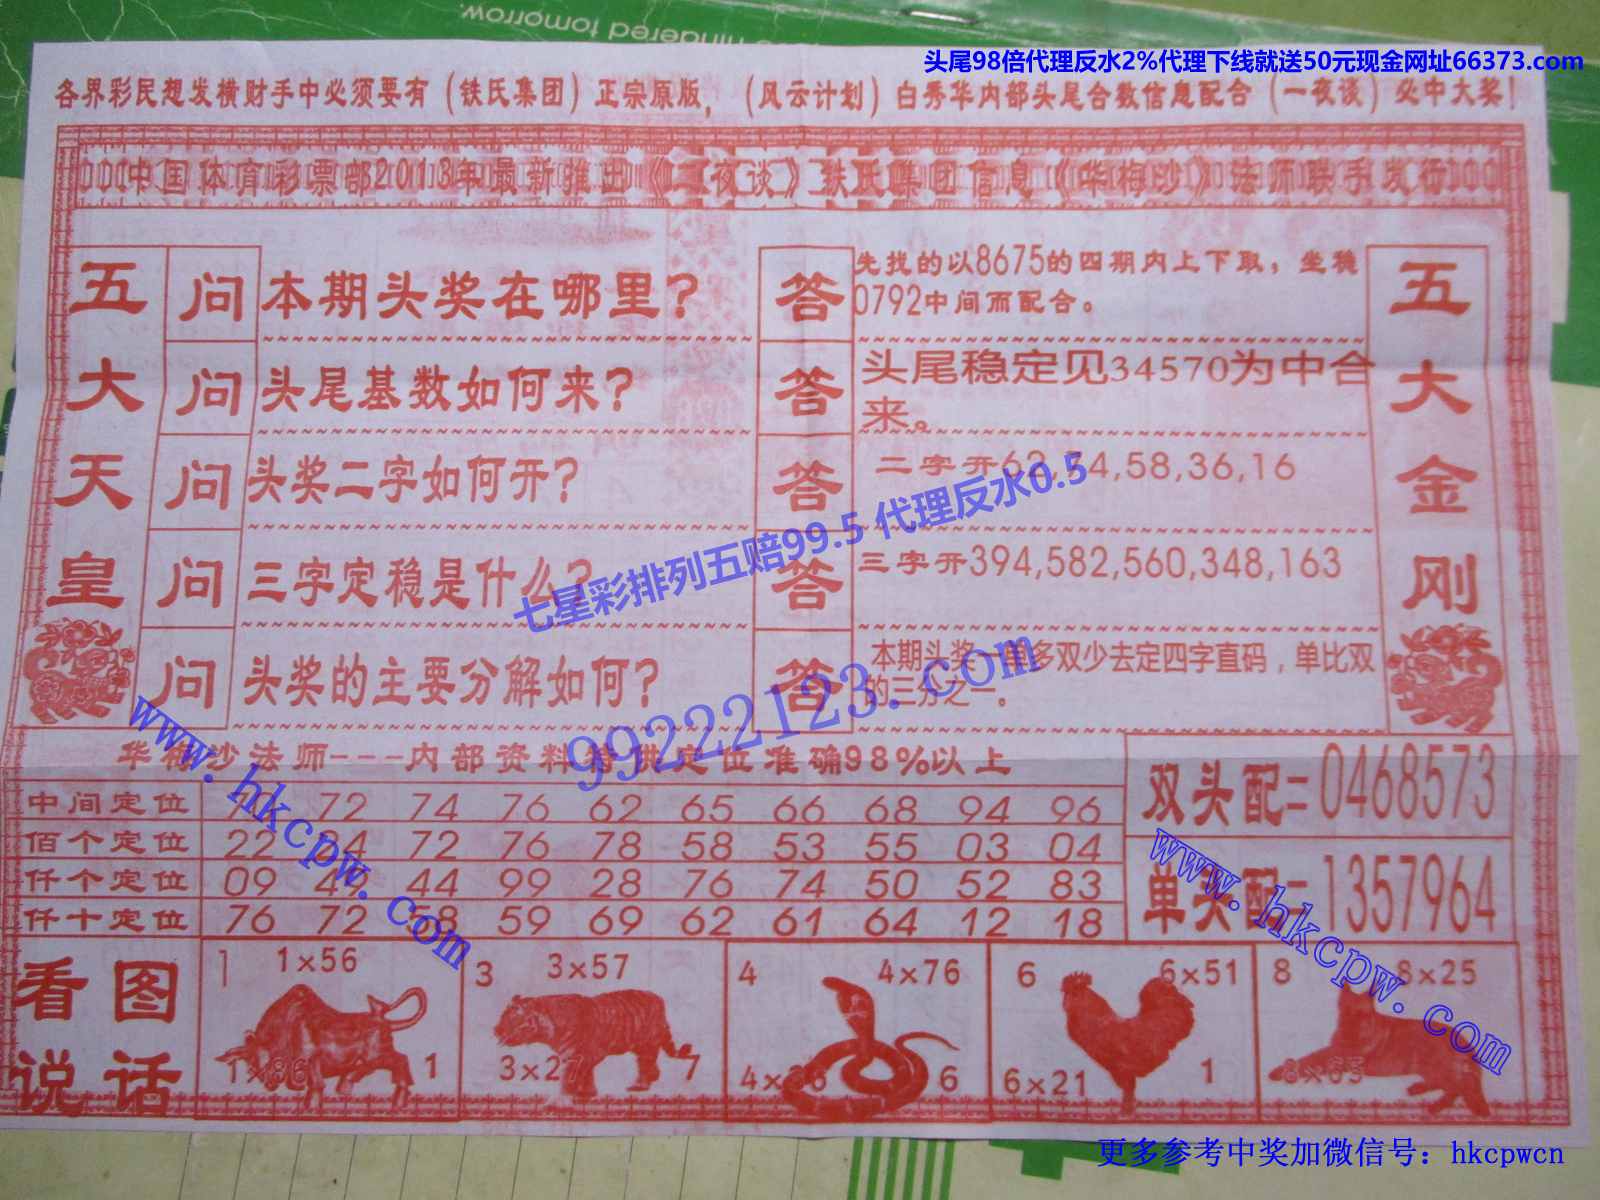 hindered tomorrow.
头尾98倍代理反水2%代理下线就送50元现金网址66373.com
各界彩民想发横财手中必须要有（铁氏集团）正宗原版，（风云计划）白秀华内部头尾合数信息配合（一夜谈）必中大奖！
中国体育彩票部2013年最新推出《一夜谈》铁氏集团信息《华梅沙》法师联手发行
五大天皇
问 本期头奖在哪里？
答 先找的以8675的四期内上下取，坐稳
0792中间而配合。
问 头尾基数如何来？
答 头尾稳定见34570为中合
来。
问 头奖二字如何开？
答 二字开62,74,58,36,16
问 三字定稳是什么？
答 三字开394,582,560,348,163
问 头奖的主要分解如何？
答 本期头奖一单多双少去定四字直码，单比双
的三分之一。
五大金刚
七星彩排列五赔99.5 代理反水0.5
99222123.com
www.hkcpw.com
华梅沙法师---内部资料特供定位准确98%以上
中间定位 72 74 76 62 65 66 68 94 96
佰个定位 22 24 72 76 78 58 53 55 03 04
仟个定位 09 49 44 99 28 76 74 50 52 83
仟十定位 76 72 58 59 69 62 61 64 12 18
双头配二 0468573
单头配二 1357964
www.hkcpw.com
看图
说话
1 1×56
1×86 1
3 3×57
3×27 7
4 4×76
4×26 6
6 6×51
6×21 1
8 8×25
8×65
更多参考中奖加微信号：hkcpwcn